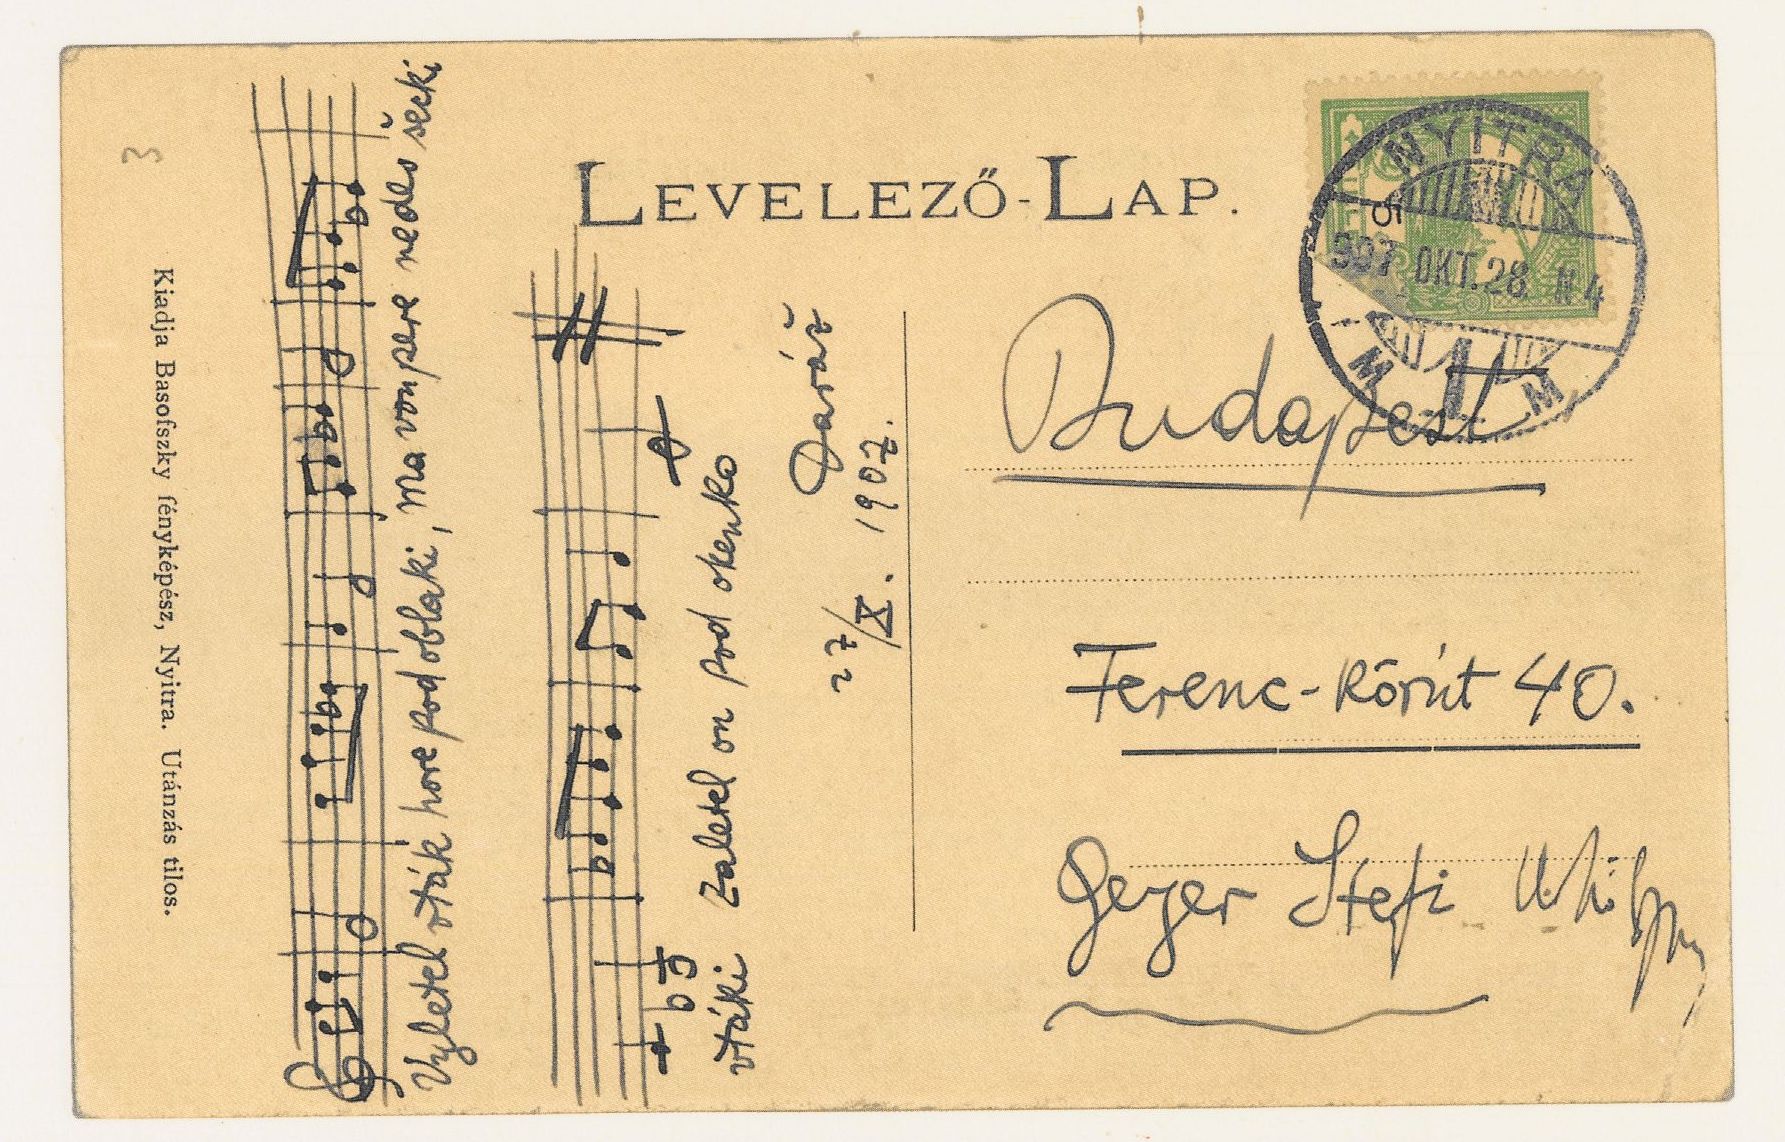 LEVELEZŐ-LAP.
NYITRA
907 OKT. 28. N 4
M M
Budapest
Ferenc-körút 40.
Geyer Stefi
Vyletel vták hore pod oblaki, ma von pere nedes šecki
vtáki zaletel on pod okenko
Daráž
27/X. 1907.
Kiadja Basofszky fényképész, Nyitra. Utánzás tilos.
3